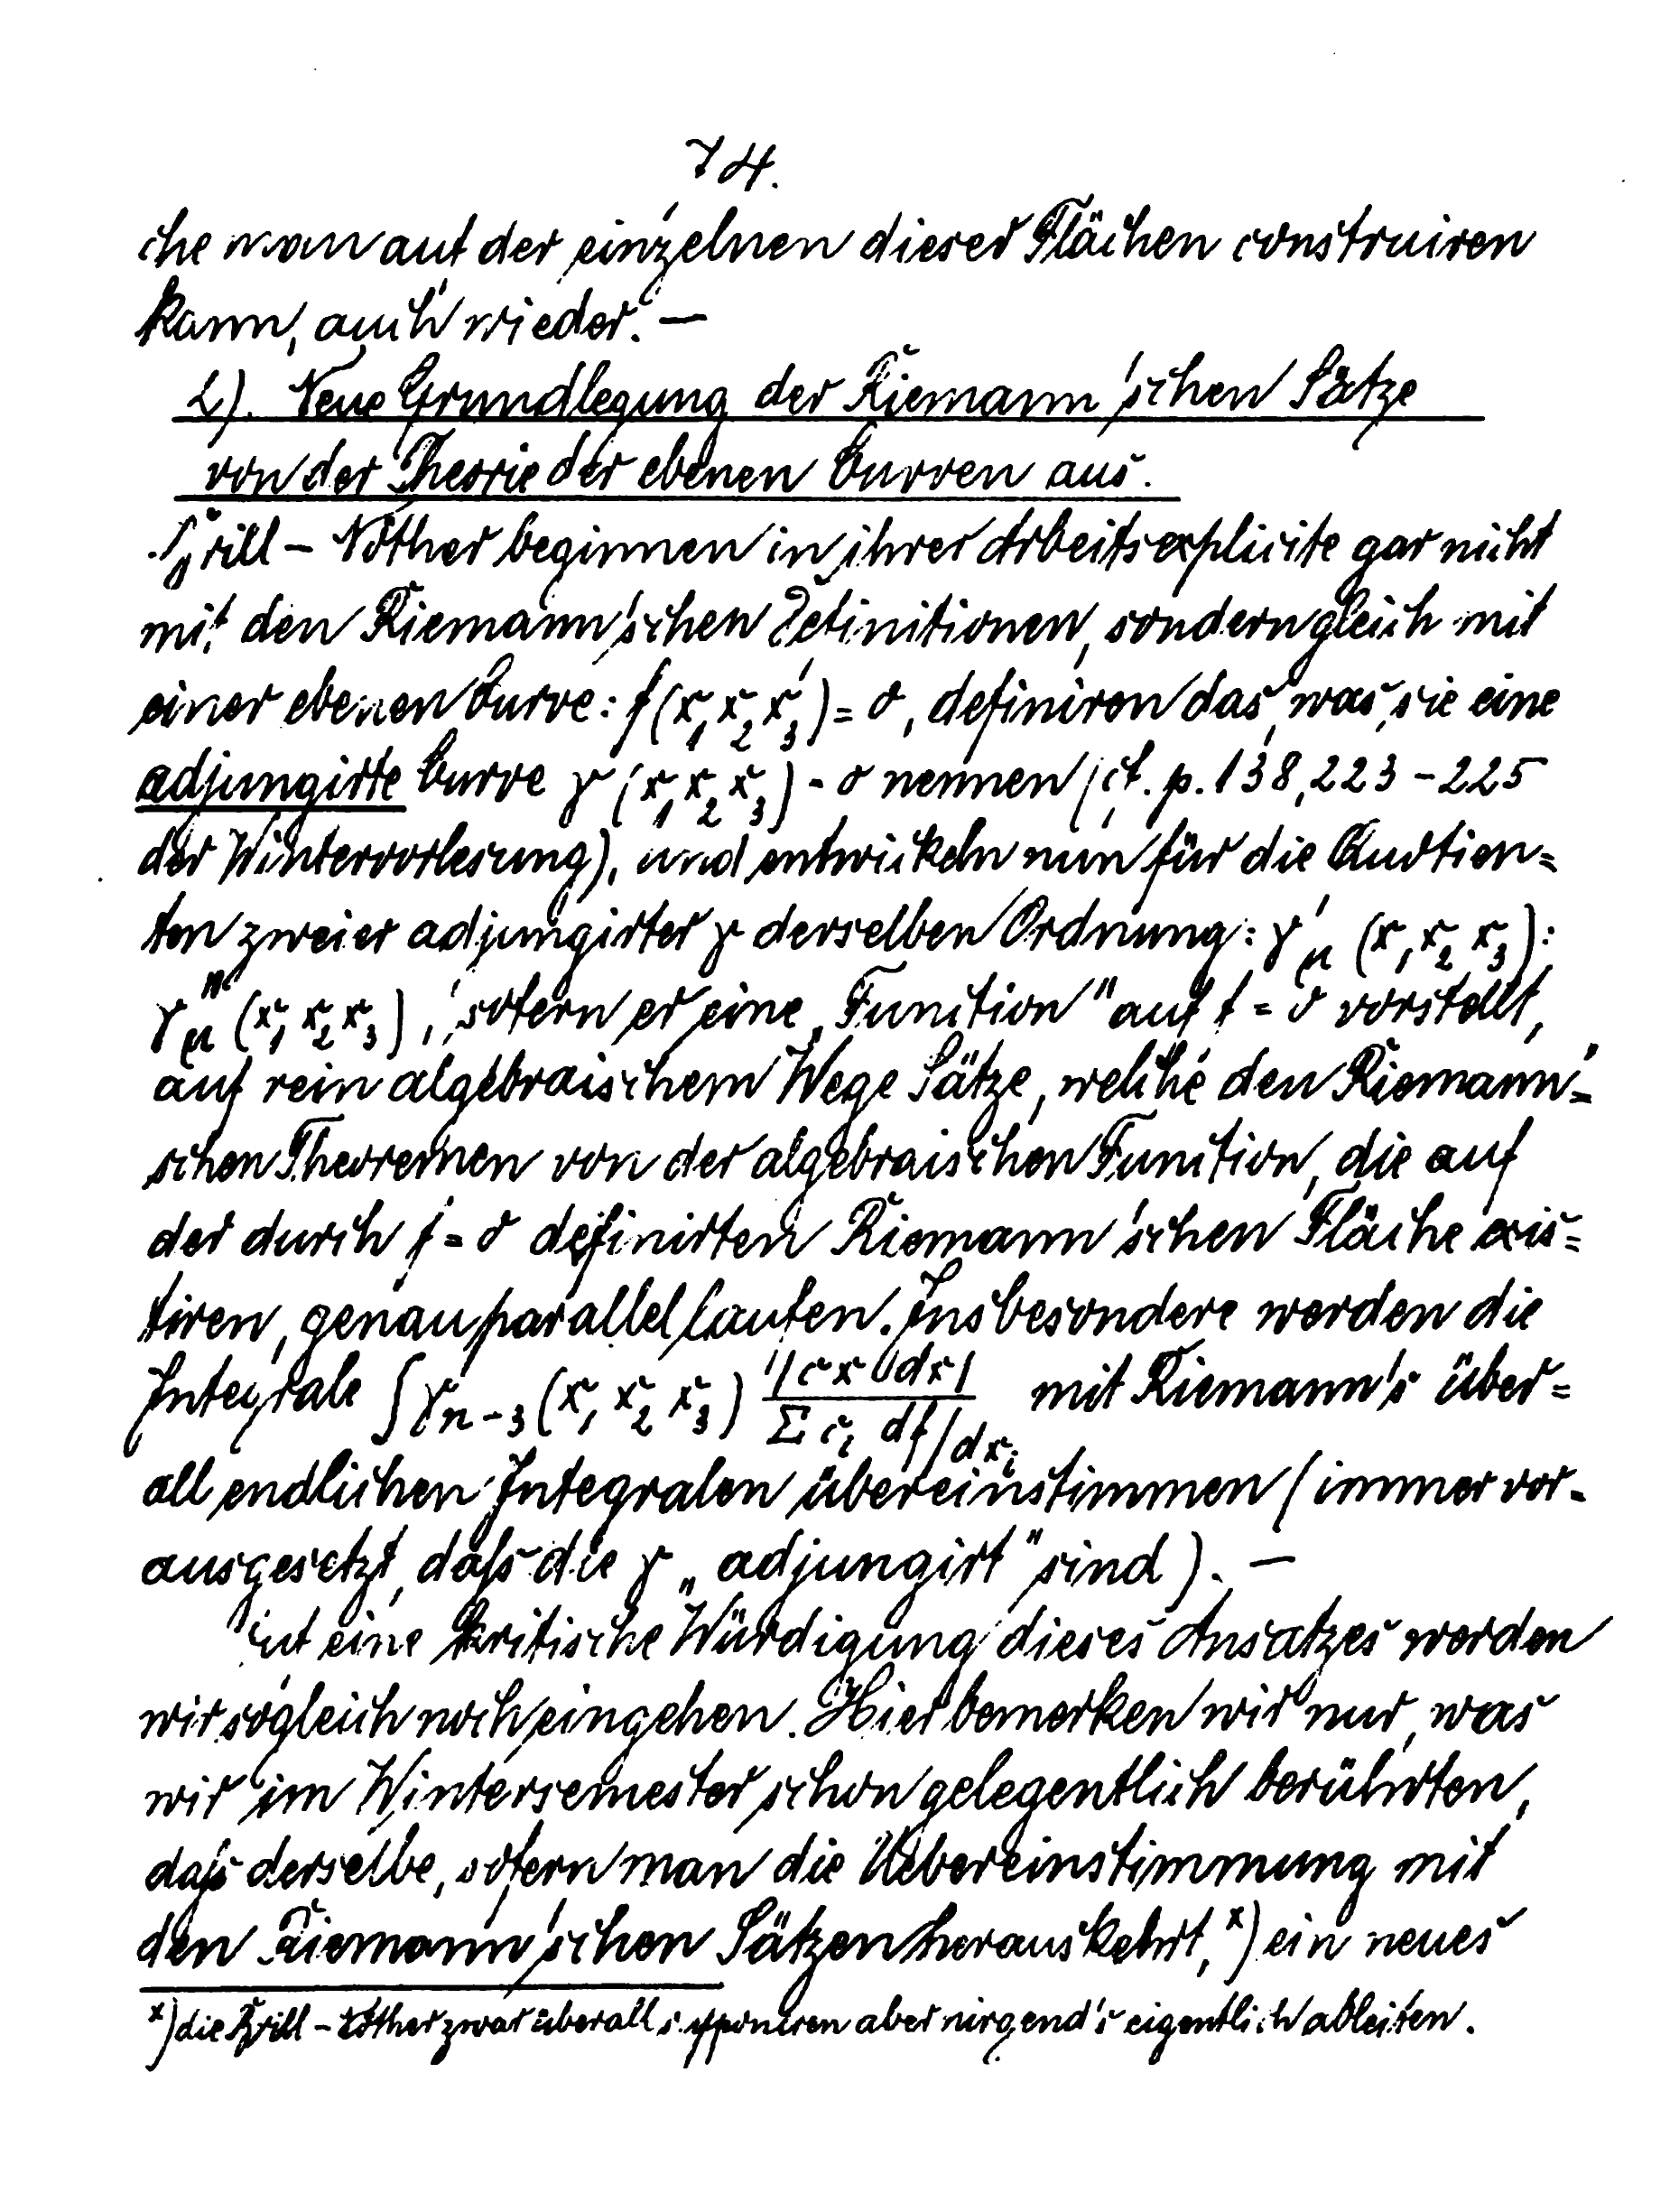 74.
che man auf der einzelnen dieser Flächen construiren
kann, auch wieder. —
2). Neue Grundlegung der Riemann'schen Sätze
von der Theorie der ebenen Curven aus.
Brill – Nöther beginnen in ihrer Arbeit explicite gar nicht
mit den Riemann'schen Definitionen, sondern gleich mit
einer ebenen Curve: f(x₁ x₂ x₃) = 0, definiren das, was sie eine
adjungirte Curve γ (x₁ x₂ x₃) = 0 nennen (cf. p. 138, 223 – 225
der Wintervorlesung), und entwickeln nun für die Quotien=
ten zweier adjungirter γ derselben Ordnung: γ'μ (x₁ x₂ x₃):
γ''μ (x₁ x₂ x₃), sofern er eine „Function" auf f = 0 vorstellt,
auf rein algebraischem Wege Sätze, welche den Riemann'=
schen Theoremen von der algebraischen Function, die auf
der durch f = 0 definirten Riemann'schen Fläche exis=
tiren, genau parallel laufen. Insbesondere werden die
Integrale ∫ γn-3 (x₁ x₂ x₃) |c x dx| / Σ cᵢ df/dxᵢ mit Riemann's über=
all endlichen Integralen übereinstimmen (immer vor=
ausgesetzt, daſs die γ „adjungirt" sind). —
eine kritische Würdigung dieses Ansatzes werden
wir sogleich noch eingehen. Hier bemerken wir nur, was
wir im Wintersemester schon gelegentlich berührten,
daſs derselbe, sofern man die Uebereinstimmung mit
den Riemann'schen Sätzen herauskehrt, x) ein neues
x) die Brill – Nöther zwar überall supponiren aber nirgend's eigentlich ableiten.